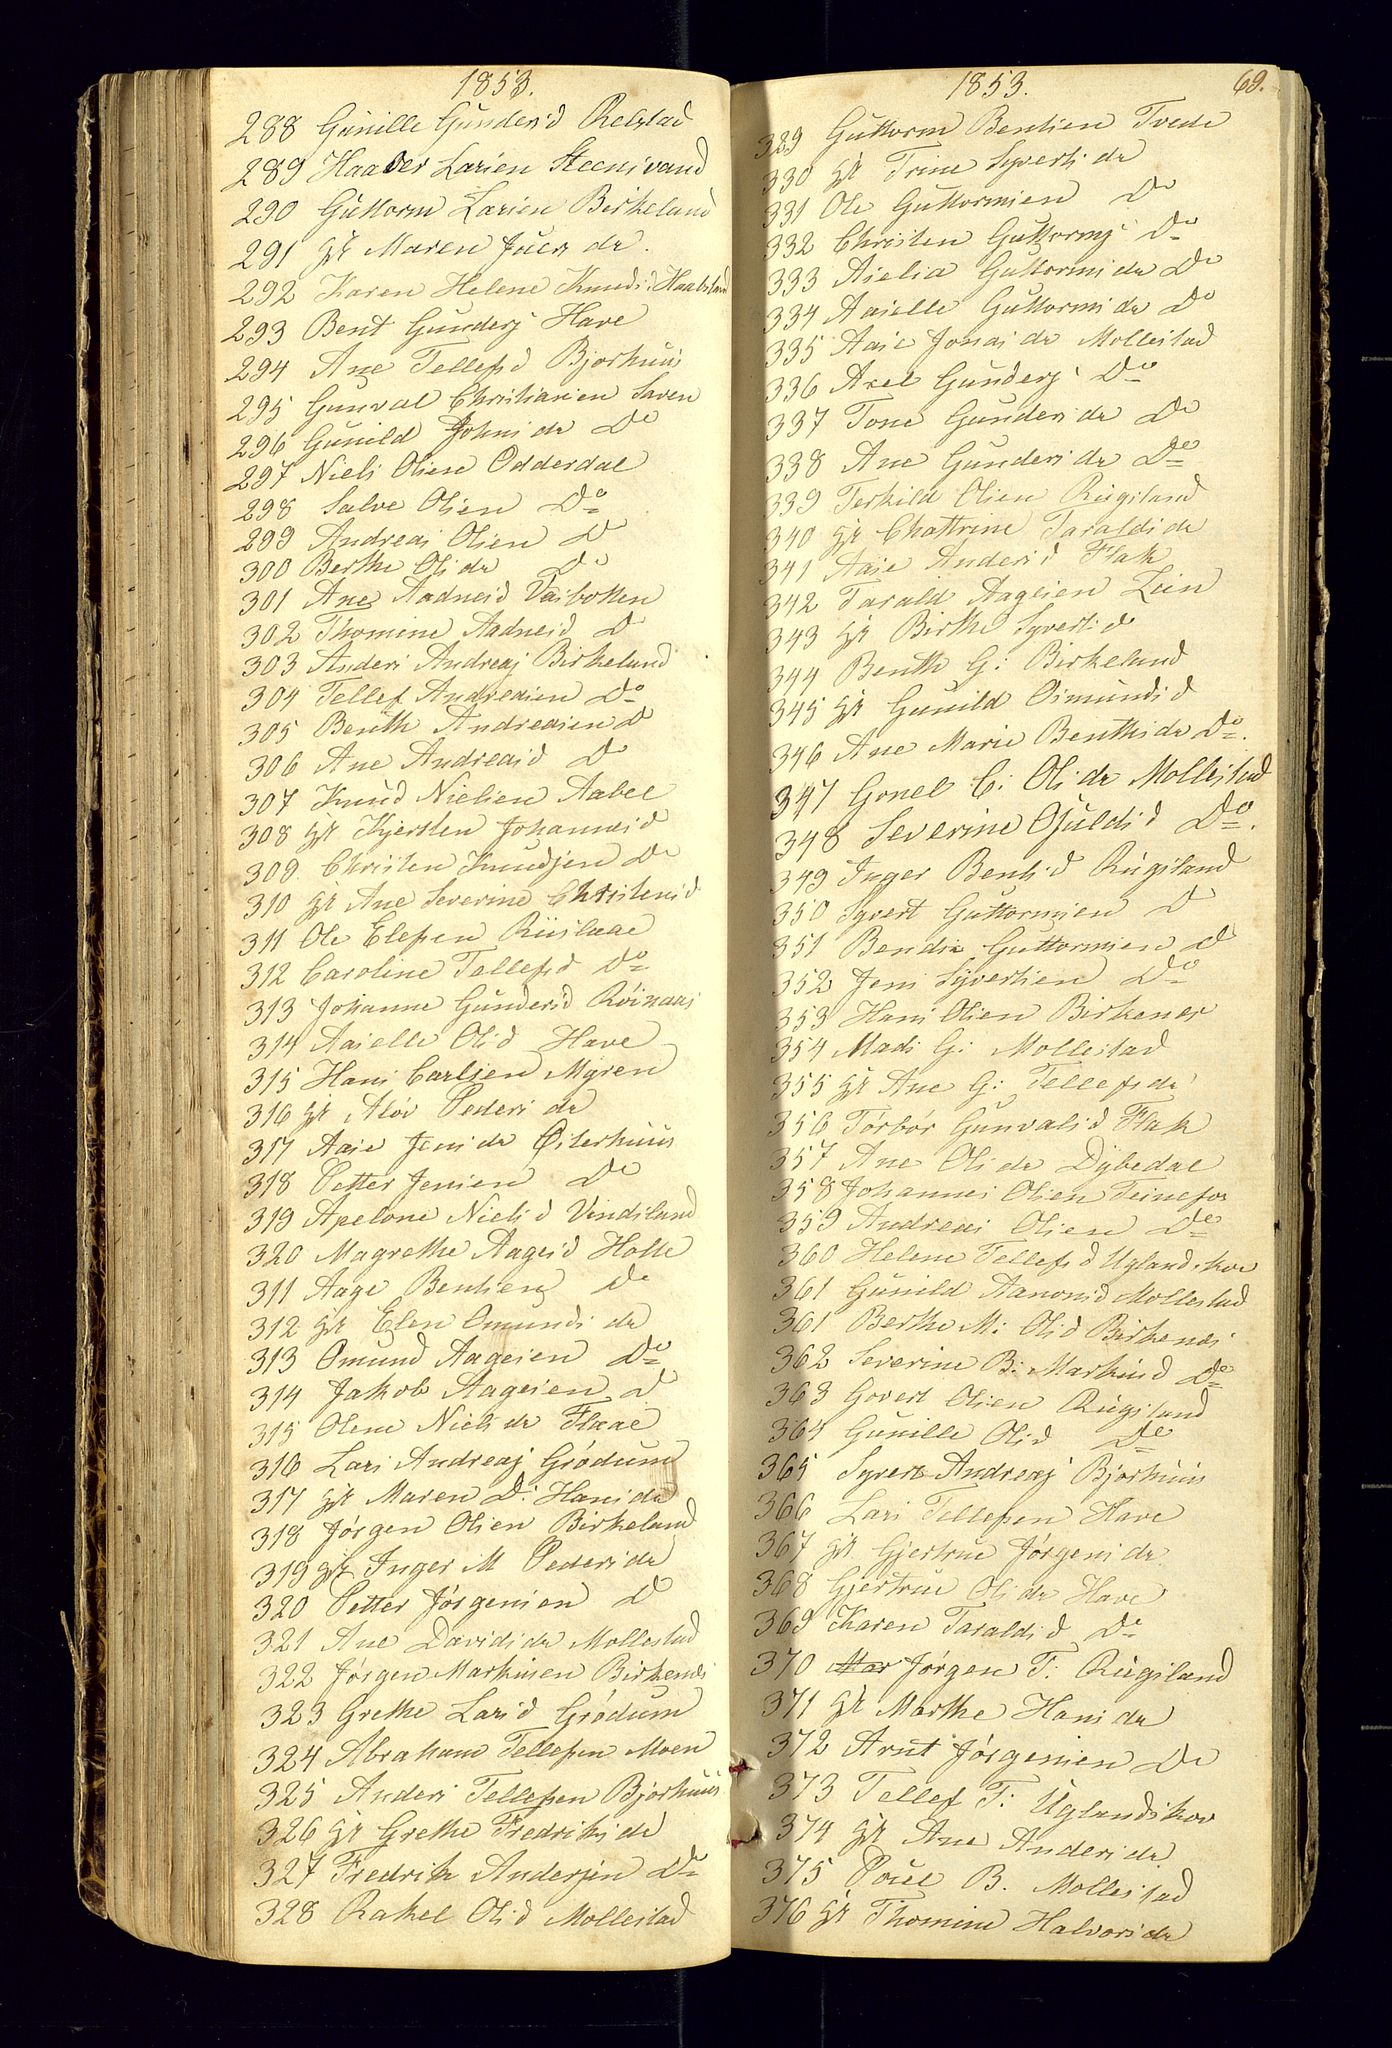 1853.
288 Gunille Gundersd Retstad
289 Haaver Larsen Steensvand
290 Guttorm Larsen Birkeland
291 gk Maren Juers da.
292 Karen Helene Knudsd Haabstad
293 Bent Gundersj Have
294 Ane Tellefsd Bjorhuus
295 Gunval Christiansen Saven
296 Gunild Johnsda Do
297 Niels Olsen Odderdal
298 Salve Olsen Do
299 Andreas Olsen Do
300 Berthe Olsda Do
301 Ane Aadnesd Vasbotten
302 Thomine Aadnesd Do
303 Anders Andreasj Birkeland
304 Tellef Andreasen Do
305 Benth Andreasen Do
306 Ane Andreasd Do
307 Knud Nielsen Aabel
308 gk Kjersten Johannesd
309. Christen Knudsen Do
310 gk Ane Severine Christensd
311 Ole Elefsen Riislaae
312 Caroline Tellefsd Do
313 Johanne Gundersd Röinaas
314 Aaselle Olsd Have
315 Hans Carlsen Myren
316 gk Alöv Peders da
317 Aase Jensda Østerhuus
318 Petter Jensen Do
319 Apelone Nielsd Vindsland
320 Magrethe Aagesd Holte
311 Aage Bentsen Do
312 gk Elen Omunds da
313 Omund Aagesen Do
314 Jakob Aagesen Do
315 Olene Niels da Flaae
316 Lars Andreasj Grödum
317 gk Maren D: Hansda
318 Jörgen Olsen Birkeland
319 gk Inger M Pedersda
320 Petter Jörgensen Do
321 Ane Davidsda Mollestad
322 Jörgen Markusen Birkenes
323 Grethe Larsd Grödum
324 Abraham Tellefsen Moen
325 Anders Tellefsen Bjorhuus
326 gk Grethe Fredriksda
327 Fredrik Andersen Do
328 Rakel Olsd Mollestad
1853. 69.
329 Guttorm Bentsen Tvede
330 gk Trine Syverts da
331 Ole Guttormsen Do
332 Christen Guttormsj Do
333 Aselia Guttormsda Do
334 Aaselle Guttorms da Do
335 Aase Jonas da Mollestad
336 Axel Gundersj Do
337 Tone Gunders da Do
338 Ane Gunders da Do
339 Terkild Olsen Rugsland
340 gk Chattrine Taralds da
341 Aase Andersd Flak
342 Tarald Aagesen Lien
343 gk Birthe Syvertsd
344 Benth G: Birkeland
345 gk Gunild Osmundsd
346 Ane Marie Benthsda Do.
347 Gonel C: Olsda Mollestad
348 Severine Ojuldsd Do.
349 Inger Bentsd Rugsland
350 Syvert Guttormsen Do
351 Bendix Guttormsen Do
352 Jens Syvertsen Do
353 Hans Olsen Birkenes
354 Mads G: Mollestad
355 gk Ane G: Tellefsda
356 Törbör Gunvalsd Flak
357 Ane Olsda Dybedal
358 Johannes Olsen Teinefos
359 Andreas Olsen Do
360 Helene Tellefsd Uglandskov
361 Gunild Aanonsd Mollestad
361 Berthe M: Olsd Birkenes
362 Severine B: Markusd Do
363 Govert Olsen Rugsland
364 Gunille Olsd Do
365 Syvert Andreasj Bjorhuus
366 Lars Tellefsen Have
367 gk Gjertrue Jörgens da
368 Gjertrue Olsda Have
369 Karen Taraldsd Do
370 Mar Jörgen T: Rugsland
371 gk Marthe Hans da
372 Arnt Jörgensen Do
373 Tellef T: Uglandskov
374 gk Ane Anders da
375 Poul B. Mollestad
376 gk Thomine Halvorsda